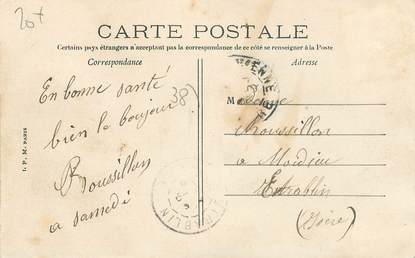 20+
CARTE POSTALE
Certains pays étrangers n'acceptant pas la correspondance de ce côté se renseigner à la Poste
Correspondance
Adresse
En bonne santé
bien le boujour
Roussillon
a samedi
38)
I. P. M. PARIS
VIENNE
ESTRABLIN
Madame
Roussillon
a Moidieu
Estrablin
(Isère)